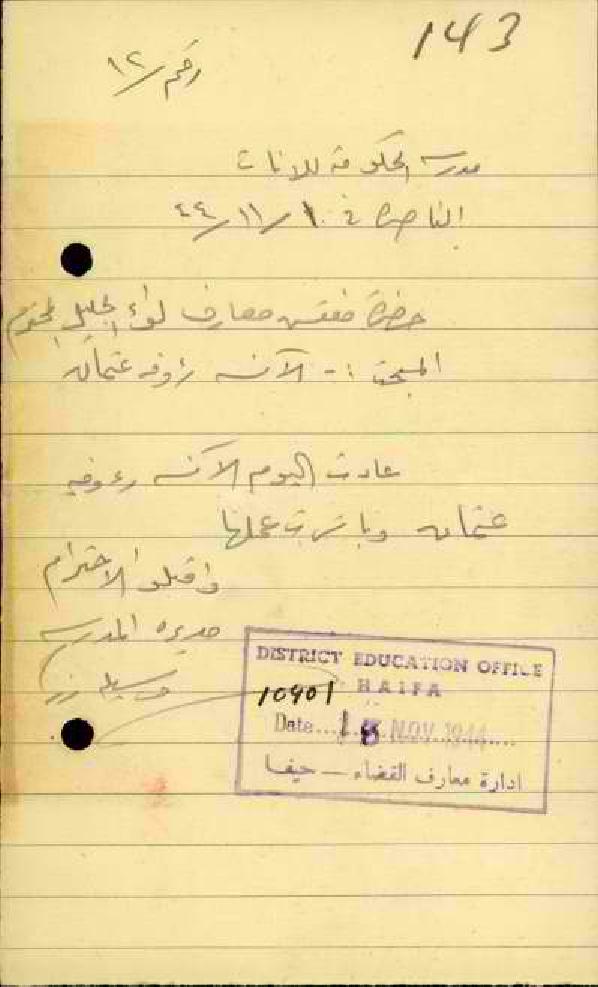 143
رقم /١٢
مدرسة الحكومة للاناث
الناصرة في ١٠/١١/٤٤
حضرة مفتش معارف لواء الجليل المحترم
المبحث :- الآنسه رؤوفه عثمان
عادت اليوم الآنسه رءوفه
عثمان وباشرت عملها
واقبلوا الاحترام
مديرة المدرسه
DISTRICT EDUCATION OFFICE
HAIFA
10901
Date NOV 1944
ادارة معارف القضاء — حيفا